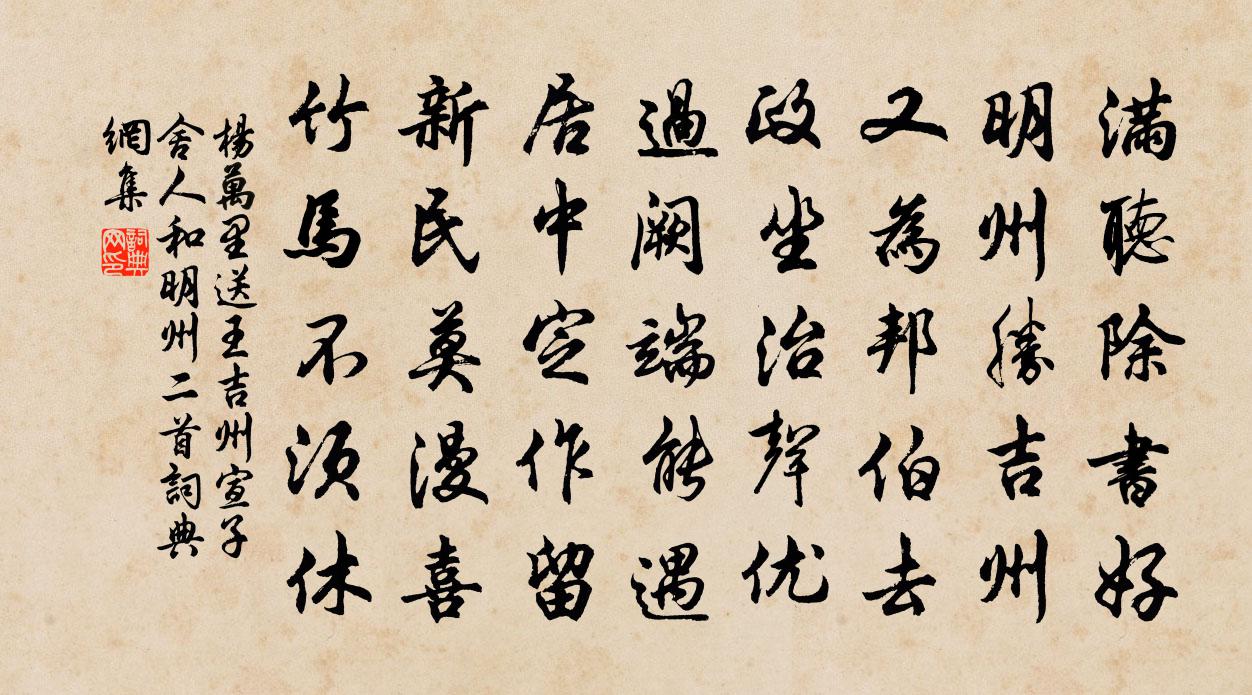 滿聽除書好
明州勝吉州
又為邦伯去
政坐治聲优
過闕端能遇
居中定作留
新民莫漫喜
竹馬不須休
楊萬里送王吉州宣子
舍人和明州二首詞典
網集
詞典网印